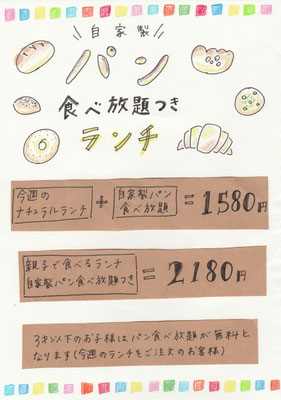 自家製
パン
食べ放題つき
ランチ
今週の
ナチュラルランチ
+
自家製パン
食べ放題
=1,580円
親子で食べるランチ
自家製パン食べ放題つき
=2,180円
3才以下のお子様はパン食べ放題が無料と
なります(今週のランチをご注文のお客様)